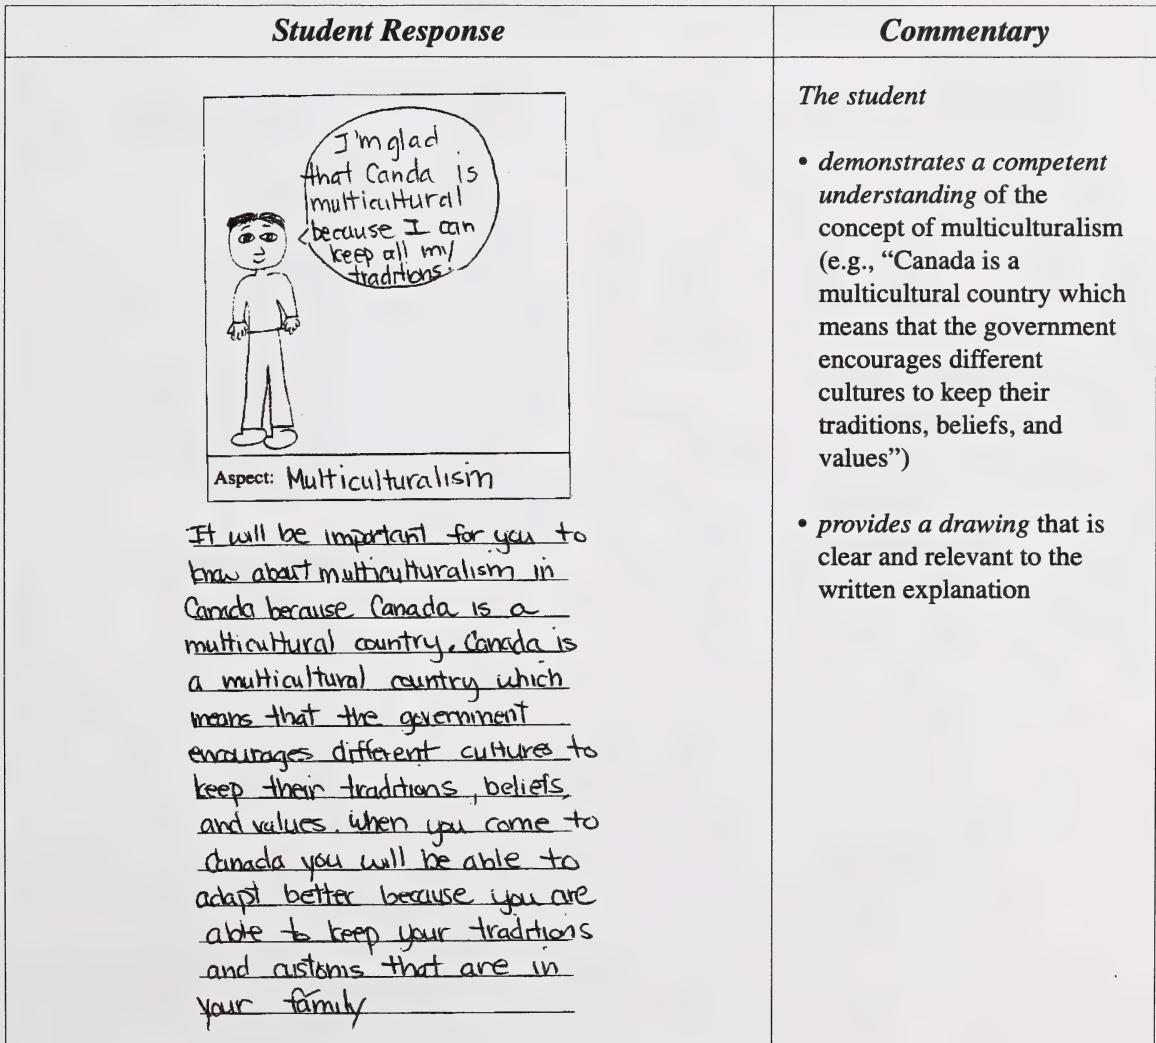 Student Response
Commentary
I'm glad
that Canda is
multicultural
because I can
keep all my
traditions.
Aspect: Multiculturalism
It will be important for you to
know about multiculturalism in
Canada because Canada is a
multicultural country. Canada is
a multicultural country which
means that the government
encourages different cultures to
keep their traditions, beliefs,
and values. When you come to
Canada you will be able to
adapt better because you are
able to keep your traditions
and customs that are in
your family
The student
• demonstrates a competent
understanding of the
concept of multiculturalism
(e.g., “Canada is a
multicultural country which
means that the government
encourages different
cultures to keep their
traditions, beliefs, and
values”)
• provides a drawing that is
clear and relevant to the
written explanation